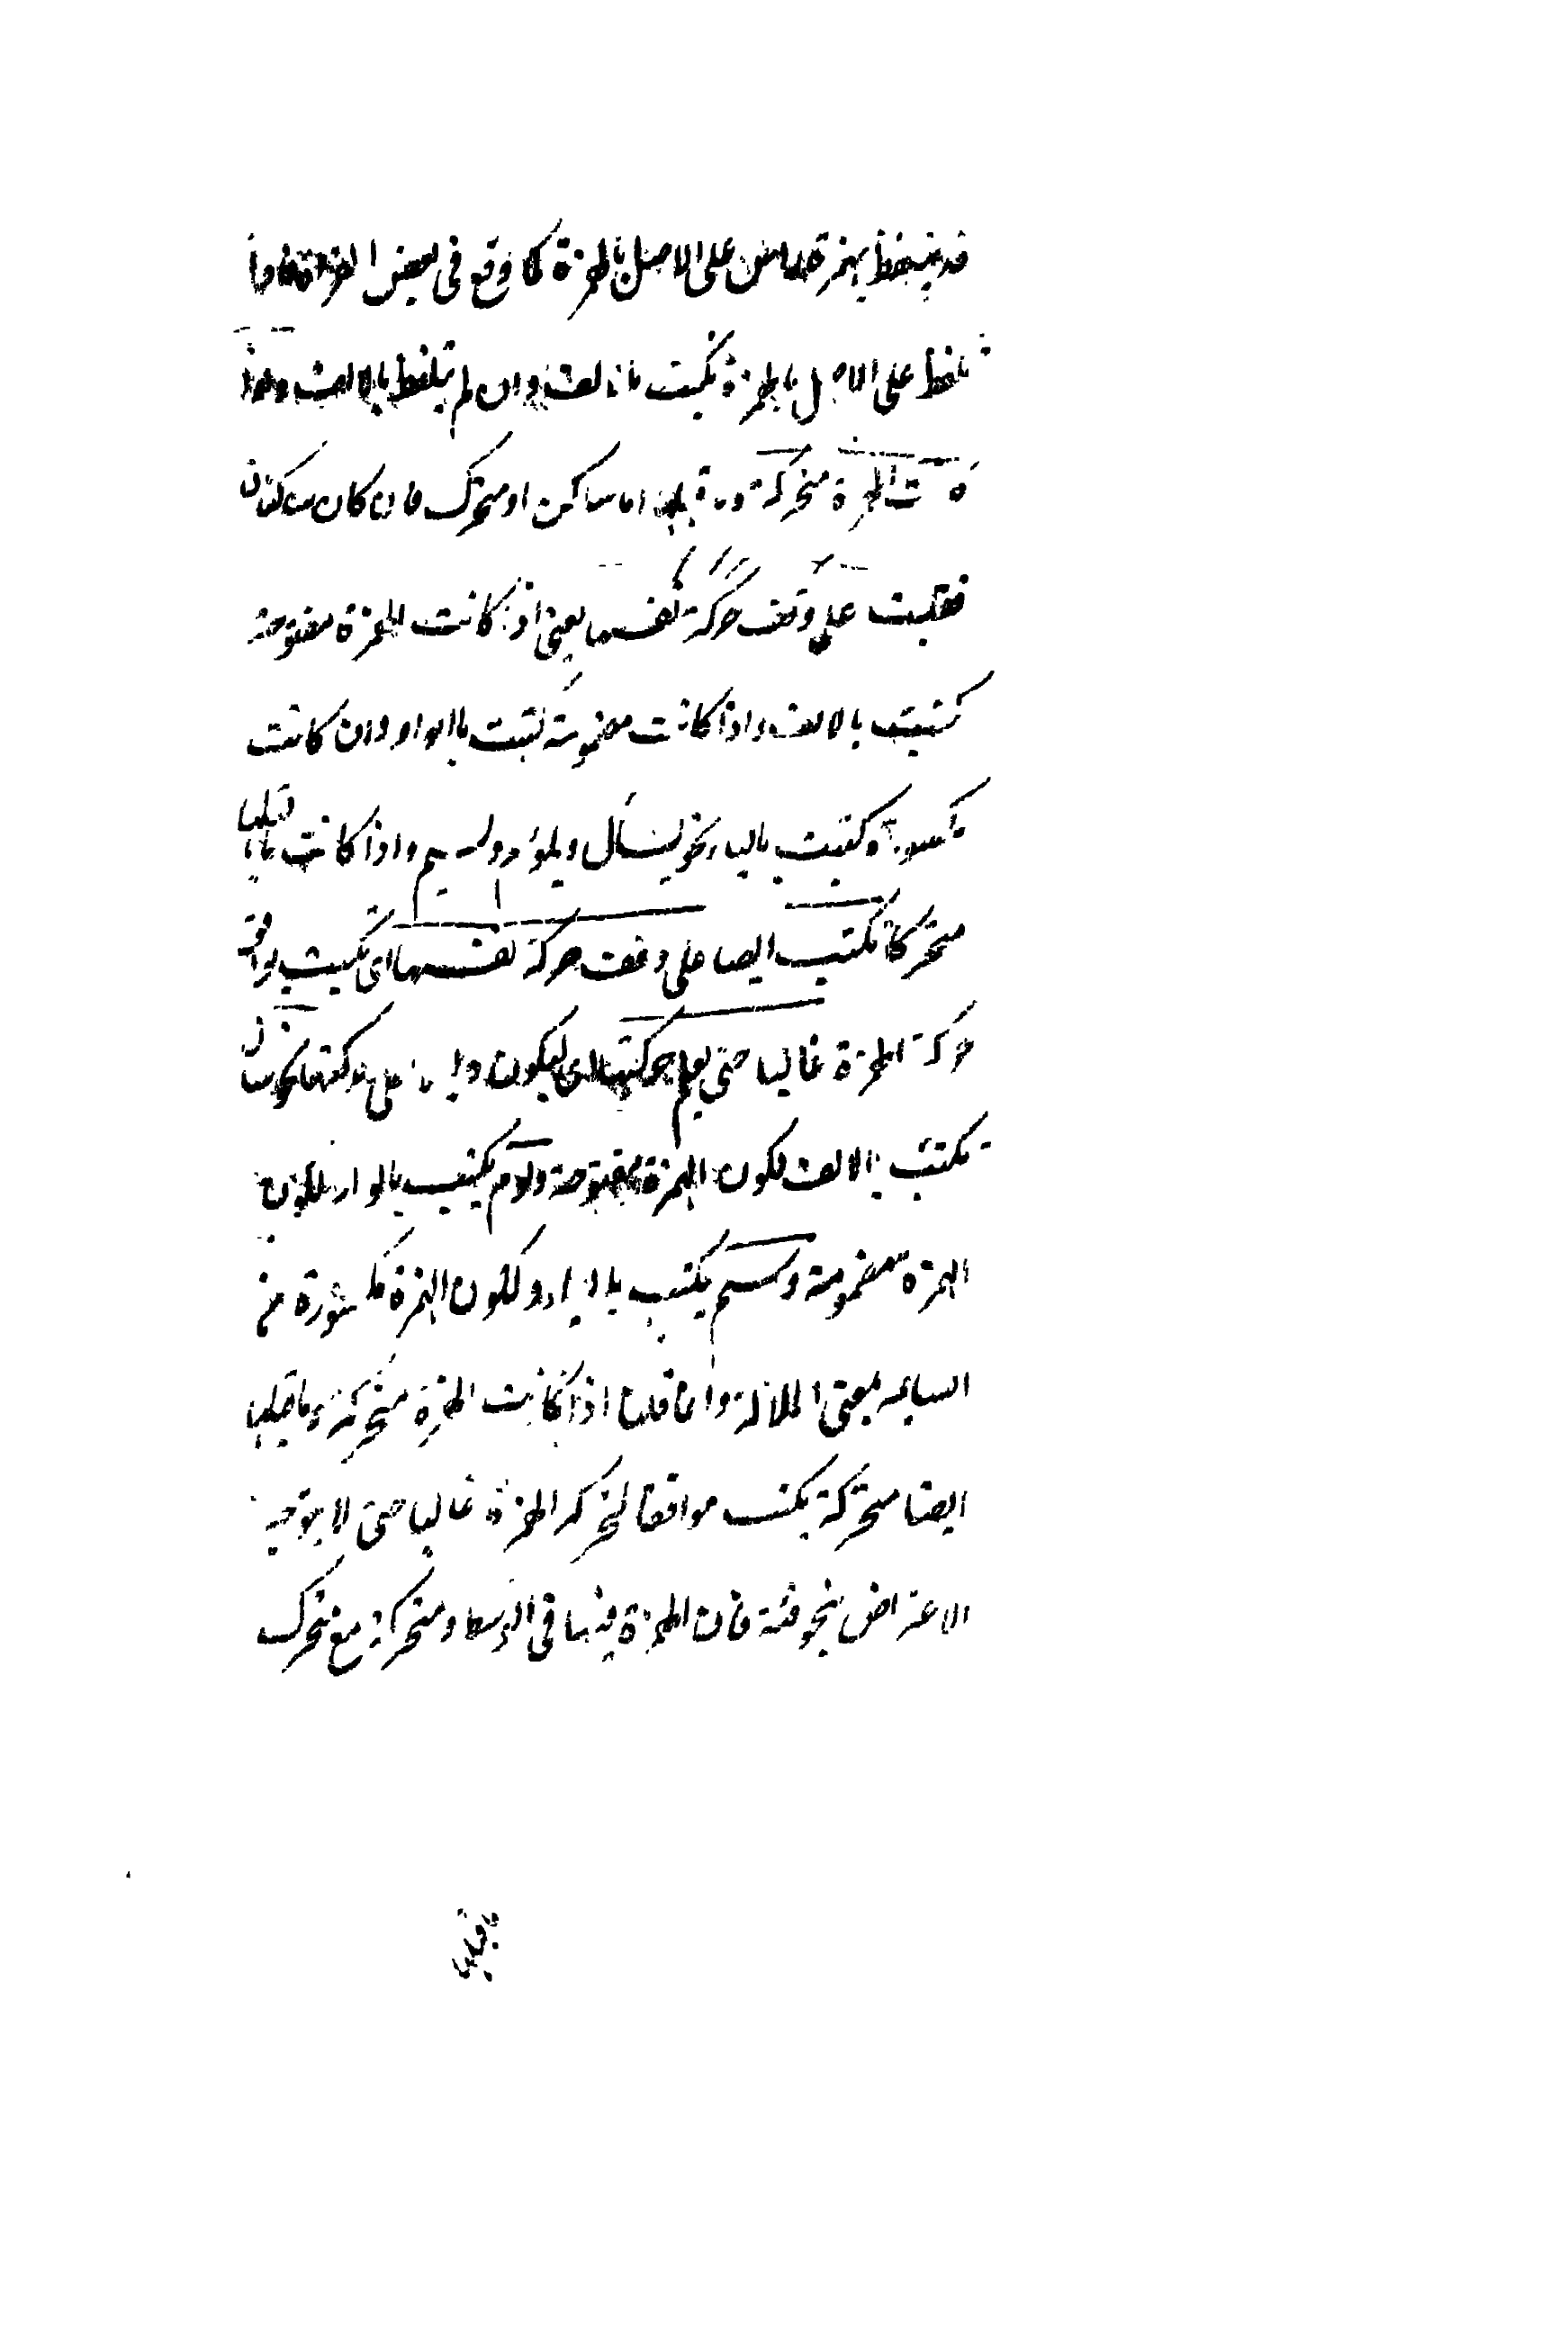 قد يتلفظ بهمزة على الاصل بالهمزة كما وقع في بعض القراءة فاذا
تلفظ على الاصل بالهمزة تكتب بالالف وان لم يتلفظ بالالف واذا
كانت الهمزة متحركة وما قبلها اما ساكن او متحرك فان كان ساكنا
فكتبت على وفق حركة نفسها يعني اذا كانت الهمزة مفتوحة
كتبت بالالف واذا كانت مضمومة كتبت بالواو وان كانت
مكسورة كتبت بالياء نحو يسأل ويلؤم ويسئم واذا كانت ما قبلها
متحركا تكتب ايضا على وفق حركة نفسها اى تكتب بوافق
حركة الهمزة غالبا حتى يعلم حركتها اى ليكون دالا على حركتها نحو سأل
تكتب بالالف لكون الهمزة مفتوحة ولؤم يكتب بالواو لكون
الهمزة مضمومة وسئم يكتب بالياء لكون الهمزة مكسورة من
السامة بمعنى الملالة وان قلت اذا كانت الهمزة متحركة وما قبلها
ايضا متحركة يكتب موافقا لحركة الهمزة غالبا حتى لا يتوجه
الاعتراض بنحو فئة فان الهمزة فيها في الوسط ومتحركة مع تحرك